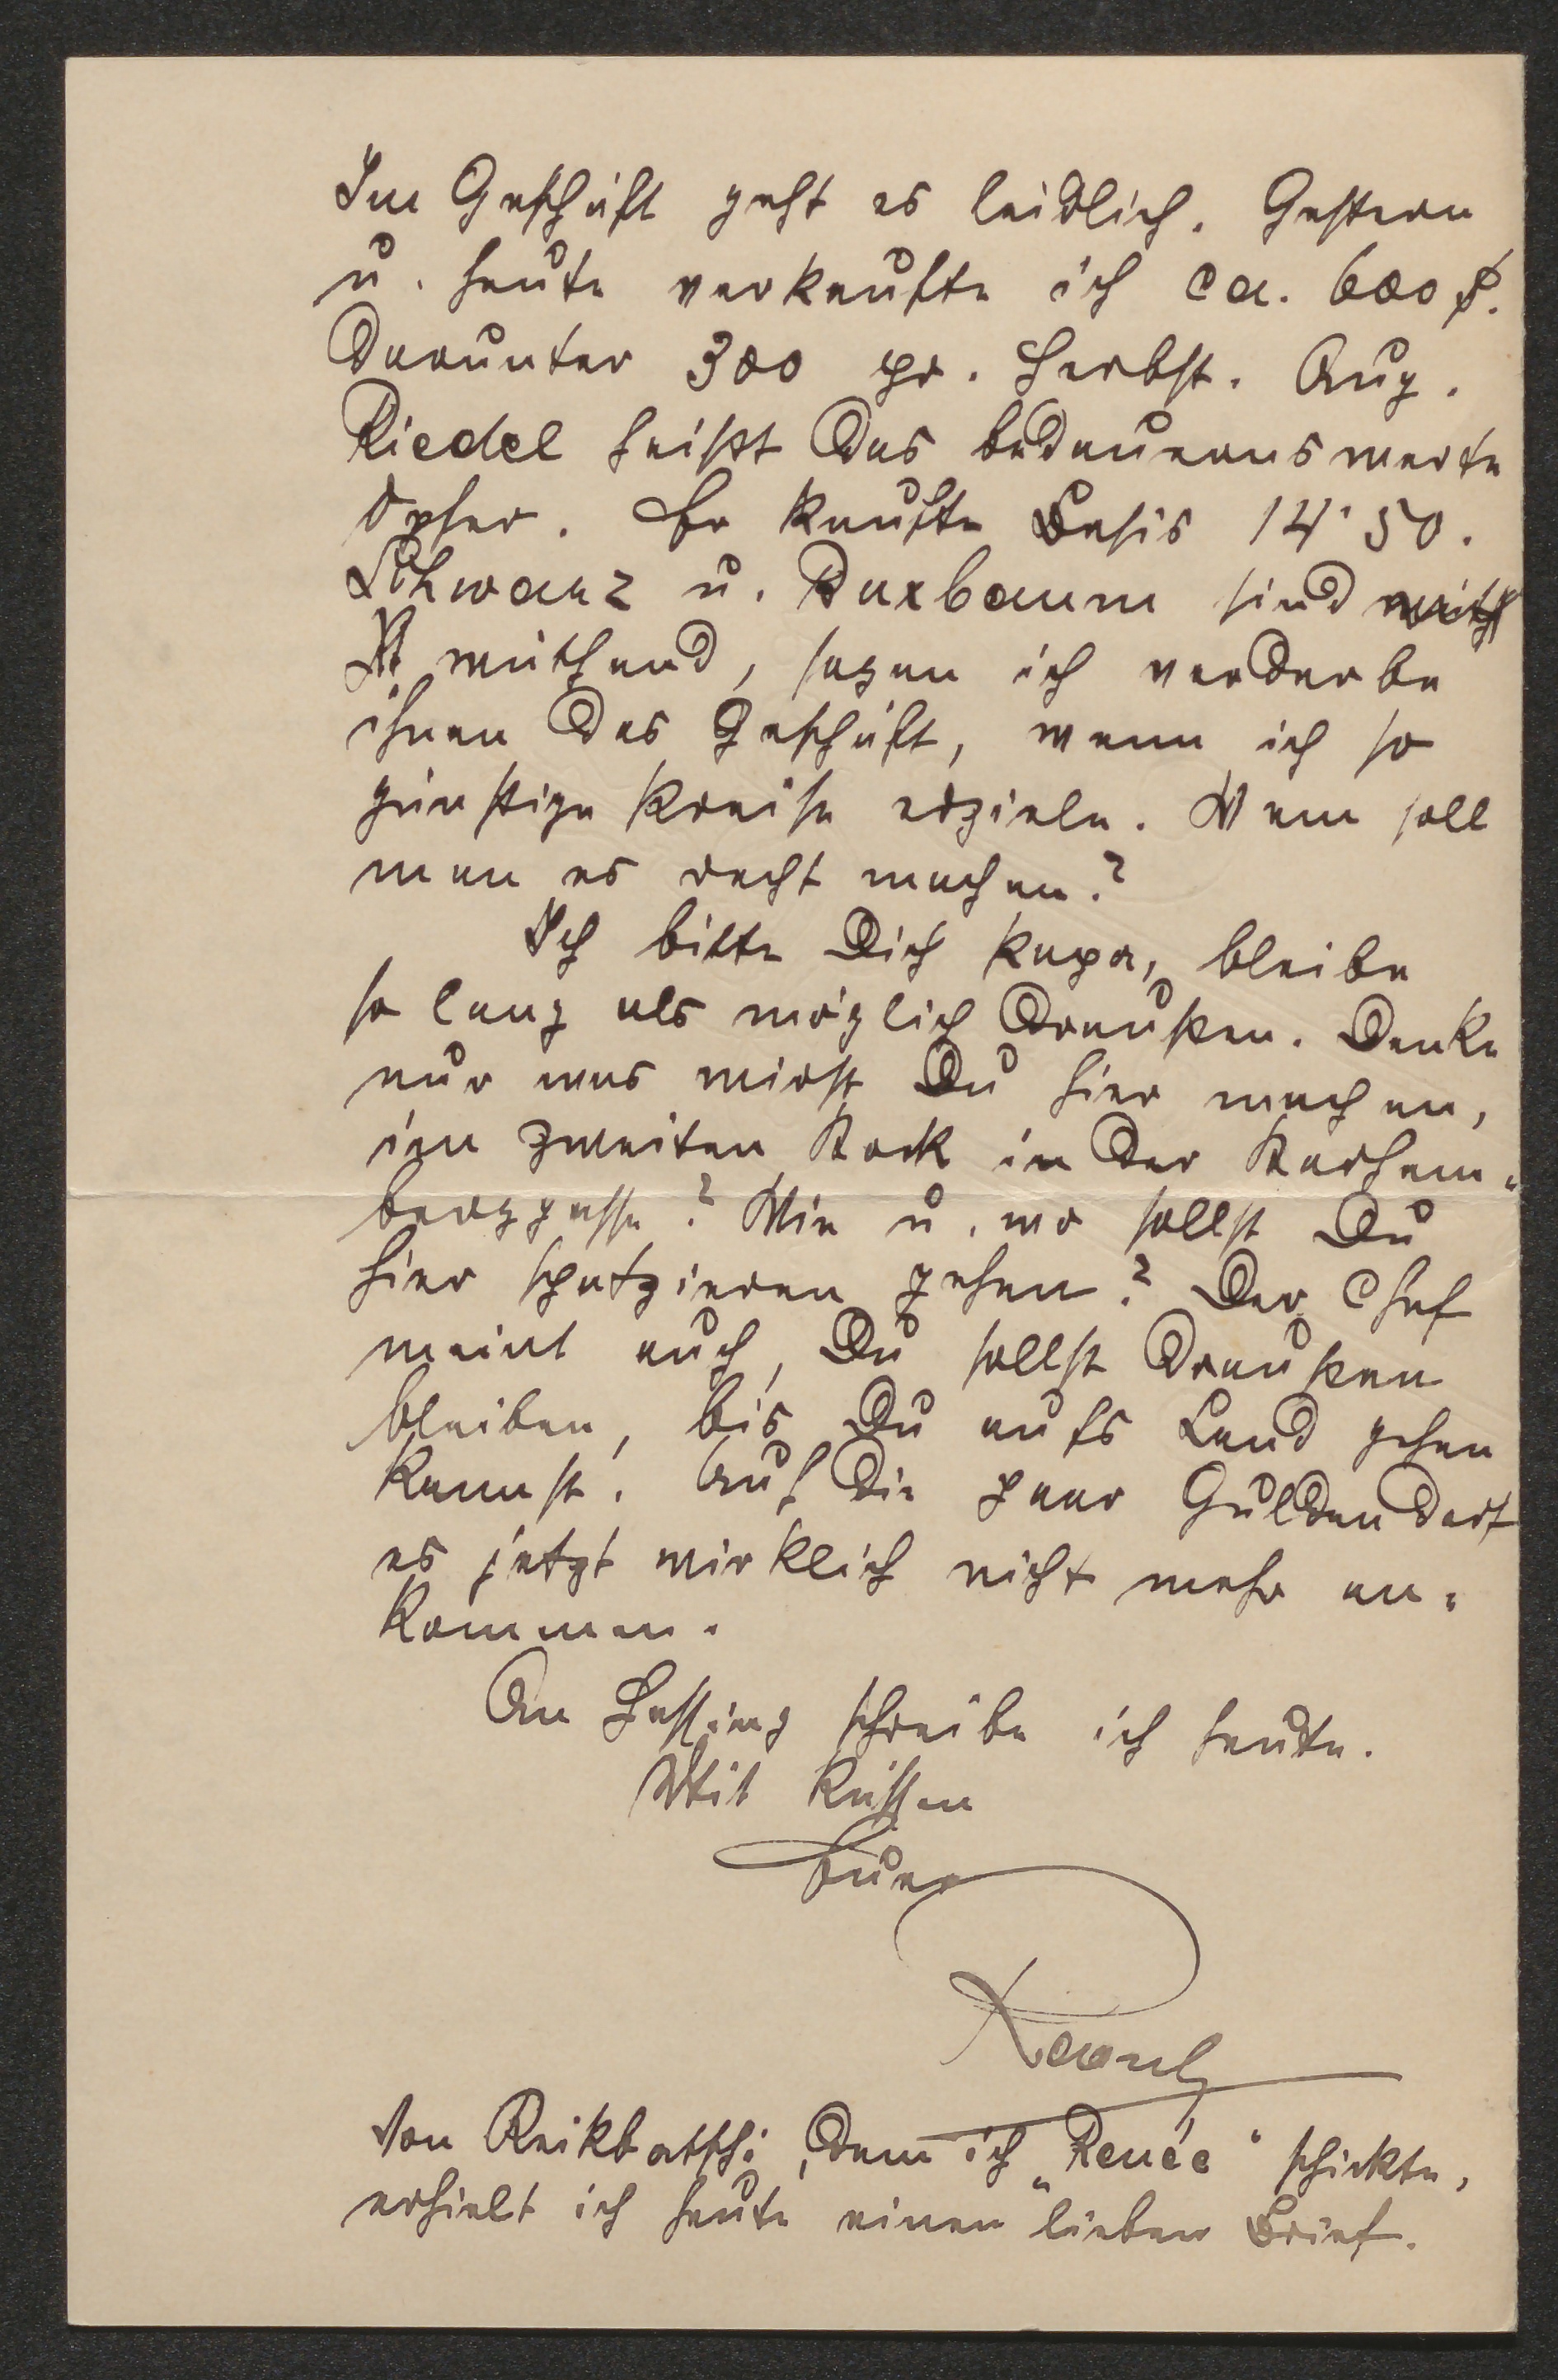 Im Geschäft geht es leidlich. Gestern
u. heute verkaufte ich ca. 600 
Darunter 300 pr. Herbst. Aug.
Riedel heißt das bedauernswerte
Opfer. Er kaufte Basis 14·50.
Schwarz u. Buxbaum sind
wüthend, sagen ich verderbe
ihnen das Geschäft, wenn ich so
günstige Preise erziele. Wem soll
man es recht machen?
Ich bitte Dich Papa, bleibe
so lang als möglich draußen. Denke
nur was wirst Du hier machen,
im zweiten Stock in der Starhem-
berggasse? Wie u. wo sollst Du
hier spatzieren gehen? Der Chef
meint auch, Du sollst draußen
bleiben, bis Du aufs Land gehen
kannst. Auf die paar Gulden darf
es jetzt wirklich nicht mehr an-
kommen.
An Lessing schreibe ich heute.
Mit Küssen
Euer
Von dem ich „Renée" schickte,
erhielt ich heute einen lieben Brief.